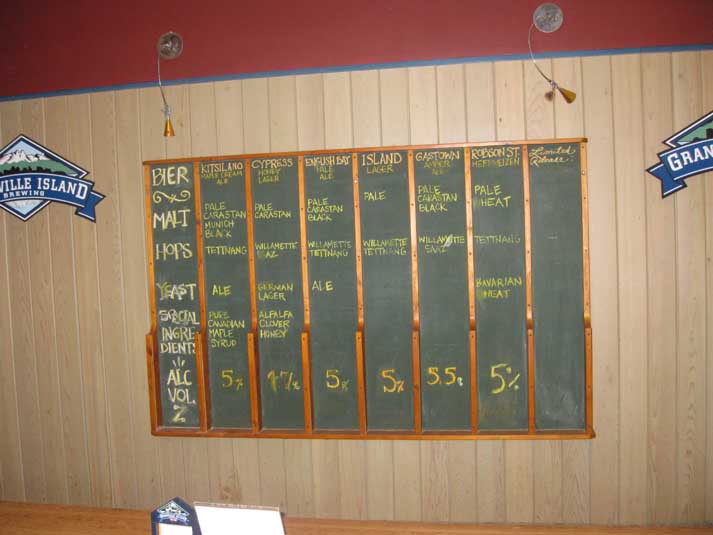 VILLE ISLAND
BREWING
GRAN
BIER
MALT
HOPS
YEAST
SPECIAL
INGRE
DIENTS
ALC
VOL
%
KITSILANO
MAPLE CREAM
ALE
PALE
CARASTAN
MUNICH
BLACK
TETTNANG
ALE
PURE
CANADIAN
MAPLE
SYRUP
5%
CYPRESS
HONEY
LAGER
PALE
CARASTAN
WILLAMETTE
SAAZ
GERMAN
LAGER
ALFALFA
CLOVER
HONEY
4.7%
ENGLISH BAY
PALE
ALE
PALE
CARASTAN
BLACK
WILLAMETTE
TETTNANG
ALE
5%
ISLAND
LAGER
PALE
WILLAMETTE
TETTNANG
5%
GASTOWN
AMBER
ALE
PALE
CARASTAN
BLACK
WILLAMETTE
SAAZ
5.5%
ROBSON ST.
HEFEWEIZEN
PALE
WHEAT
TETTNANG
BAVARIAN
WHEAT
5%
Limited
Release: